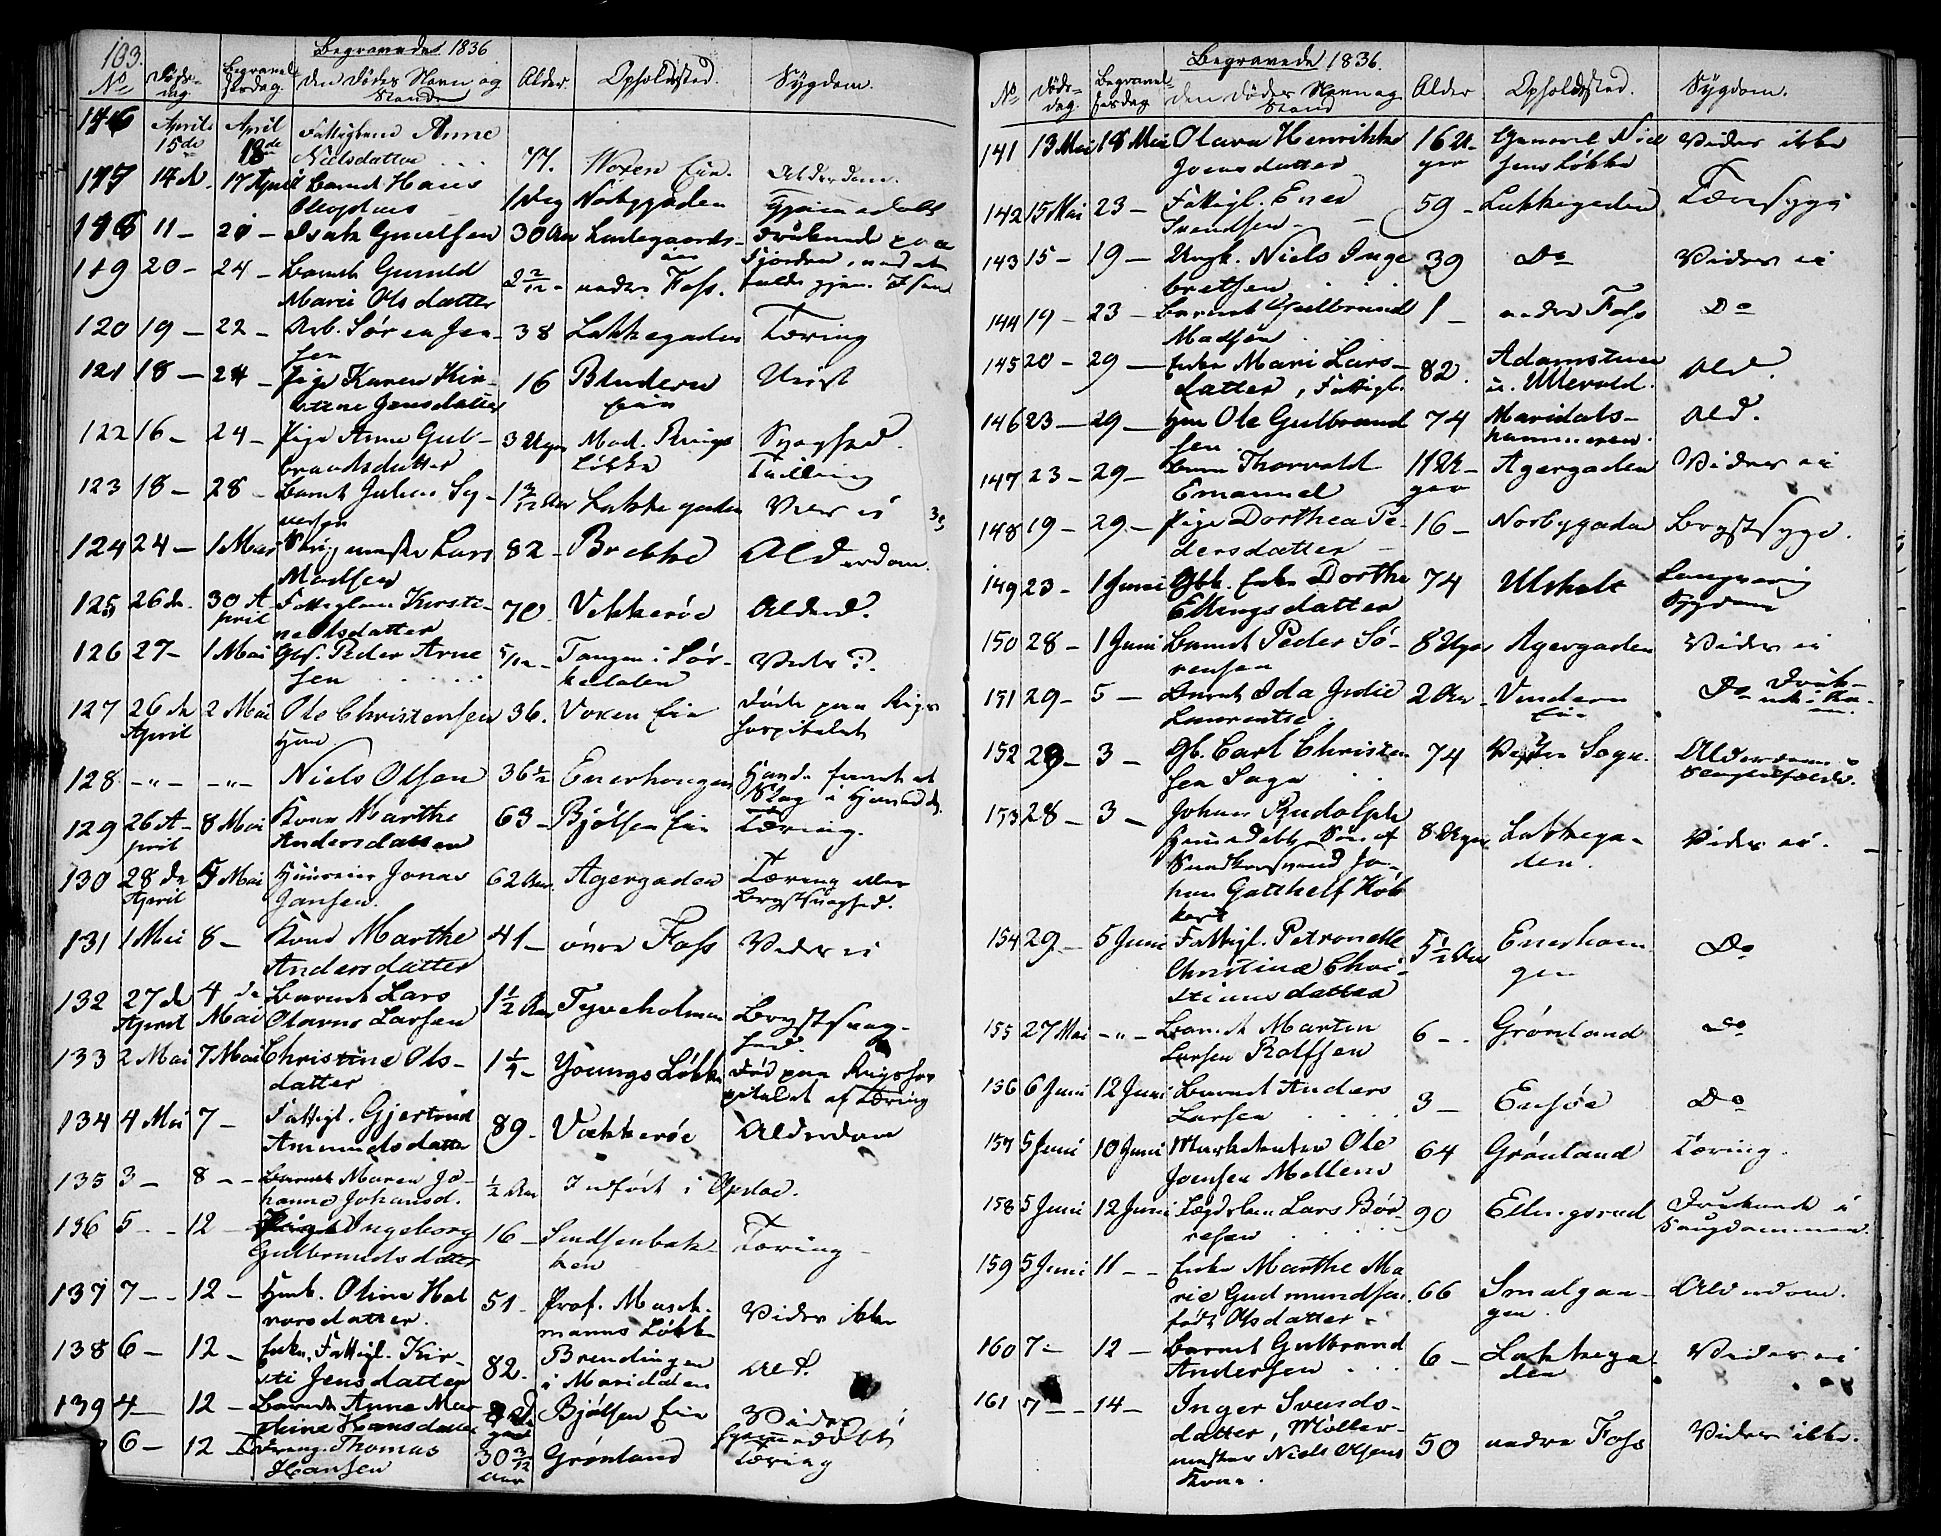 103.
Begravede 1836
No Døds-dag. Begravelsesdag. Den Dødes Navn og Stand Alder. Opholdssted. Sygdom.
116 April 15de April 18de Fattiglem Anne
Nielsdatter 77. Voxen Eie. Alderdom.
117 14de 17 April Barnet Hans
Olaus 1 Dag Norbygaden Hjemmedøbt
118 11 – 20 – Isak Gudsen 30 Aar
119 20 – 24 – Barnet Gunild
Marie Olsdatter 2 2/12 – nedre Foss.
120 19 – 22 – Arb. Søren Jen-
sen 38 Lakkegaden Tæring
121 18 – 24 – Pige Karen Kir-
stine Jensdatter 16 Blindern Eie Uvist
122 16 – 24 – Pige Anne Gul-
brandsdatter 3 Uger Mad. Rings Løkke Svaghed.
123 18 – 28 – Barnet Julius Sy-
versen 1 3/12 Aar Lakkegaden Veed ei
124 24 – 1 Mai Lars
Madsen 82 – Brekke Alderdom.
125 26de 30 April Fattiglem Kirsti-
ne Olsdatter 70. Vekkerøe Alderd.
126 27 – 1 Mai Gbf. Peder Arne
sen 5/12 – Tangen i Sør-
kedalen Vides?.
127 26de April 2 Mai Ole Christensen
Hmd. 36. Voxen Eie Døde paa Rigs
hospitalet
128 –"– –"– Niels Olsen 36½ Enerhougen
129 26 April 8 Mai Kone Marthe
Andersdatter 63 – Bjølsen Eie Tæring.
130 28de April 5 Mai Huuseier Jonas
Jansen. 62 Aar. Agergaden Tæring eller
Brystsvaghed.
131 1 Mai 8 – Kone Marthe
Andersdatter 41 – øvre Foss Vides ei
132 27de April 4de Mai Barnet Lars
Olavus Larsen 1½ Aar Tyveholmen Brystsvag-
hed.
133 2 Mai 7 Mai Christine Ols-
datter 1¼ – Youngs Løkke Død paa Rigshos
pitalet af Tæring
134 4 Mai 7 – Fattigl. Gjertrud
Amundsdatter 89. Vækkerøe Alderdom
135 3 – 8 – Barnet Maren Jo-
hanne Johansd. ½ Aar Indført i Opslo.
136 5 – 12 – Ingeborg
Gulbrandsdatter 16 – Sindsenbak
ken Tæring –
137 7 – 12 – Hmk. Oline Hal
vorsdatter. 51 – Prof. Masch-
manns Løkke Vides ikke
138 6 – 12 – Enke, Fattigl. Kir-
sti Jensdatter 82. Brendingen
i Maridalen Ald.
139 4 – 12 – Barnet Anne Mar
thine Hansdatter Bjølsen Eie Vides
hjemmedøbt
6 – 12 Thomas
Hansen 30 3/12 Aar Grønland Tæring
Begravede 1836.
No Døds-dag. Begravelsesdag Den Dødes Navn og Stand Alder Opholdssted. Sygdom.
141 13 Mai 18 Mai Olava Henrikke
Joensdatter 16 U-
ger General
Løkke Vides ikke
142 15 Mai 23 – Fattigl. Ener
Svendsen – 59 – Lakkegaden Tæresyge
143 15 – 19 – Ungk. Niels Inge
bretsen 39 Do Vides ei
144 19 – 23 – Barnet Gulbrand
Madsen 1 – nedre Foss Do
145 20 – 29 – Enke Mari Lars-
datter, Fattigl. 82. Adamstuen
u. Ullevold. Ald.
146 23 – 29 – Hmd Ole Gulbrand
sen 74 Maridals-
hammeren. Ald.
147 23 – 29 – Barn Thorvald
Emanuel 11 U-
ger Agergaden Vides ei
148 19 – 29 – Pige Dorthea Pe-
dersdatter – 16 – Norbygaden Brystsyge.
149 23 – 1 Juni Gbk. Enke Dorthe
Ellingsdatter 74 Ulsholt Langvarig
Sygdom
150 28 – 1 Juni Barnet Peder Sø-
rensen 8 Uger Agergaden Vides ei
151 29 – 5 – Barnet Ida Indie
Laurentse. 2 Aar – Vindern
Eie Do
152 29 – 3 – Gb. Carl Christen
sen 74 Vestre Sogn. Alderdom
153 28 – 3 – Johan Rudolph
Hjemmedøbt Søn af
Jo-
han Gotthelf 8 Uger Lakkega-
den. Vides ei.
154 29 – 5 Juni Fattigl. Petronelle
Christine Chri-
stiansdatter 5½ Aar Enerhou-
gen Do
155 27 Mai –"– Barnet Martin
Larsen Rolfsen 6 – Grønland Do
156 6 Juni 12 Juni Barnet Anders
Larsen 3 – Ensøe Do
157 5 Juni 10 Juni Marketenter Ole
Joensen Mellem 64 Grønland Tæring.
158 5 Juni 12 Juni Lægdslem Lars Bør-
resen 90 Ellingsrud Druknede i
Saugdammen.
159 5 Juni 11 – – Enke Marthe Ma
rie Gudmundsen.
født Olsdatter – 66 Smalgan-
gen. Alderdom.
160 7 – 12 – Barnet Gulbrand
Andersen 6 – Lakkega
den Vides ei
161 7 – 14 – Inger Svends-
datter, Møller-
mester Niels Olsens
Kone. 50 nedre Foss Vides ikke.